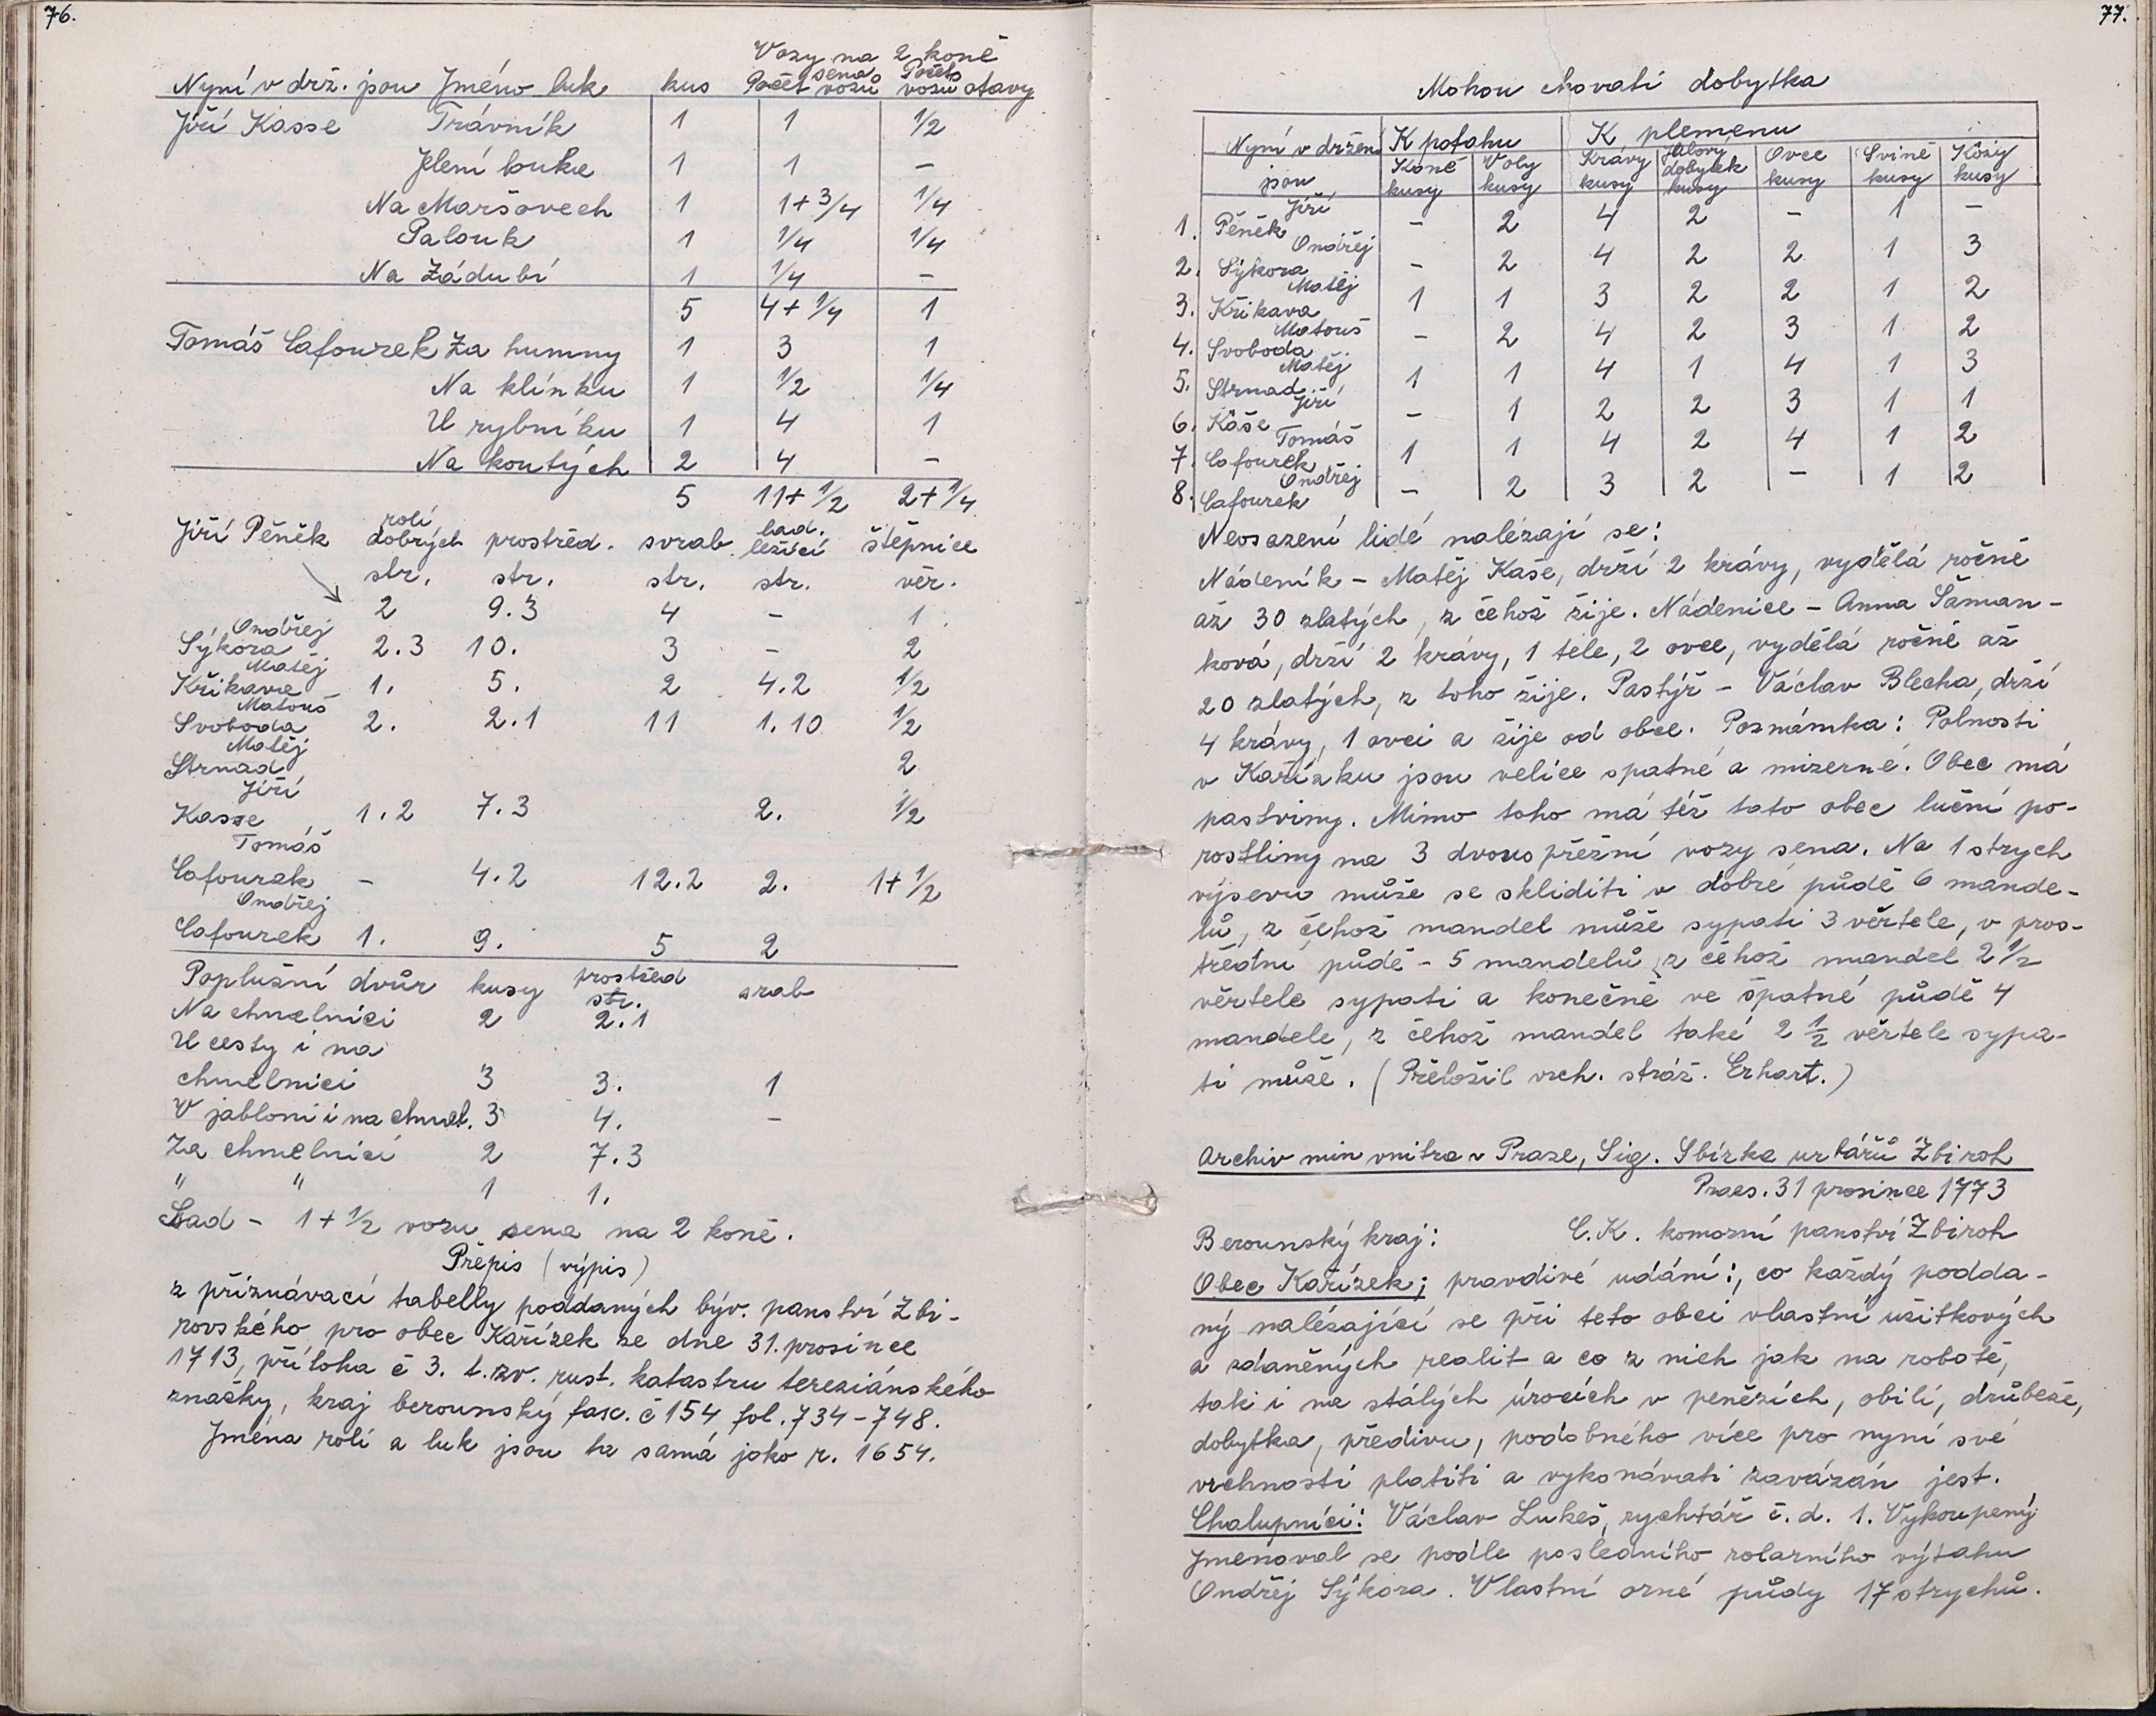 76.
Vozy na 2 koně
Nyní v drž. jsou Jméno luk kus Počet sena vozů Počet vozů otavy
Jiří Kasse Trávník 1 1 1/2
Jelení louka 1 1 –
Na Maršovech 1 1+3/4 1/4
Palouk 1 1/4 1/4
Na Zádubí 1 1/4 –
5 4+1/4 1
Tomáš Cafourek Za humny 1 3 1
Na klínku 1 1/2 1/4
U rybníku 1 4 1
Na koutých 2 4 –
5 11+1/2 2+1/4
Jiří Pěněk rolí dobrých prostřed. svrab. lad. ležící štěpnice
str. str. str. str. věr.
2 9.3 4 – 1
Ondřej
Sýkora 2.3 10. 3 – 2
Matěj
Křikava 1. 5. 2 4.2 1/2
Matouš
Svoboda 2. 2.1 11 1.10 1/2
Matěj
Strnad 2
Jiří
Kasse 1.2 7.3 2. 1/2
Tomáš
Cafourek – 4.2 12.2 2. 1+1/2
Ondřej
Cafourek 1. 9. 5 2
Poplužní dvůr kusy prostřed str. srab
Na chmelnici 2 2.1
U cesty i na
chmelnici 3 3. 1
V jabloni i na chmel. 3 4. –
Za chmelnicí 2 7.3
" " 1 1.
Sad – 1+1/2 vozu sena na 2 koně.
Přepis (výpis)
z přiznávací tabelly poddaných býv. panství Zbi-
rovského pro obec Kařízek ze dne 31. prosince
1713, příloha č 3. t.zv. rust. katastru tereziánského
značky, kraj berounský fasc. č 154 fol. 734-748.
Jména rolí a luk jsou ta samá jako r. 1654.
77.
Mohou chovati dobytka
Nyní v držení jsou K potahu K plemenu
Koně kusy Voly kusy Krávy kusy Jalový dobytek kusy Ovce kusy Svině kusy Kozy kusy
1. Pěněk Jiří – 2 4 2 – 1 –
2. Sýkora Ondřej – 2 4 2 2 1 3
3. Křikava Matěj 1 1 3 2 2 1 2
4. Svoboda Matouš – 2 4 2 3 1 2
5. Strnad Matěj 1 1 4 1 4 1 3
6. Káše Jiří – 1 2 2 3 1 1
7. Cafourek Tomáš 1 1 4 2 4 1 2
8. Cafourek Ondřej – 2 3 2 – 1 2
Neosazení lidé nalézají se:
Nádeník – Matěj Kaše, drží 2 krávy, vydělá ročně
až 30 zlatých, z čehož žije. Nádenice – Anna Šaman-
ková, drží 2 krávy, 1 tele, 2 ovce, vydělá ročně až
20 zlatých, z toho žije. Pastýř – Václav Blecha, drží
4 krávy, 1 ovci a žije od obce. Poznámka: Polnosti
v Kařízku jsou velice spatné a mizerné. Obec má
pastviny. Mimo toho má též tato obec luční po-
rostliny na 3 dvouspřežní vozy sena. Na 1 strych
výsevu může se skliditi v dobré půdě 6 mande-
lů, z čehož mandel může sypati 3 věrtele, v pros-
třední půdě – 5 mandelů, z čehož mandel 2 1/2
věrtele sypati a konečně ve špatné půdě 4
mandele, z čehož mandel také 2 1/2 věrtele sypa-
ti může. (Přeložil vrch. stráž. Erhart.)
Archiv min vnitra v Praze, Sig. Sbírka urbářů Zbiroh
Praes. 31 prosince 1773
Berounský kraj: C.K. komorní panství Zbiroh
Obec Kařízek; pravdivé udání:, co každý podda-
ný nalézající se při této obci vlastní užitkových
a zdaněných realit a co z nich jak na robotě,
tak i na stálých úrocích v penězích, obilí, drůbeže,
dobytka, předivu, podobného více pro nyní své
vrchnosti platiti a vykonávati zavázán jest.
Chalupníci: Václav Lukeš, rychtář č.d. 1. Vykoupený
Jmenoval se podle posledního rolarního výtahu
Ondřej Sýkora. Vlastní orné půdy 17 strychů.